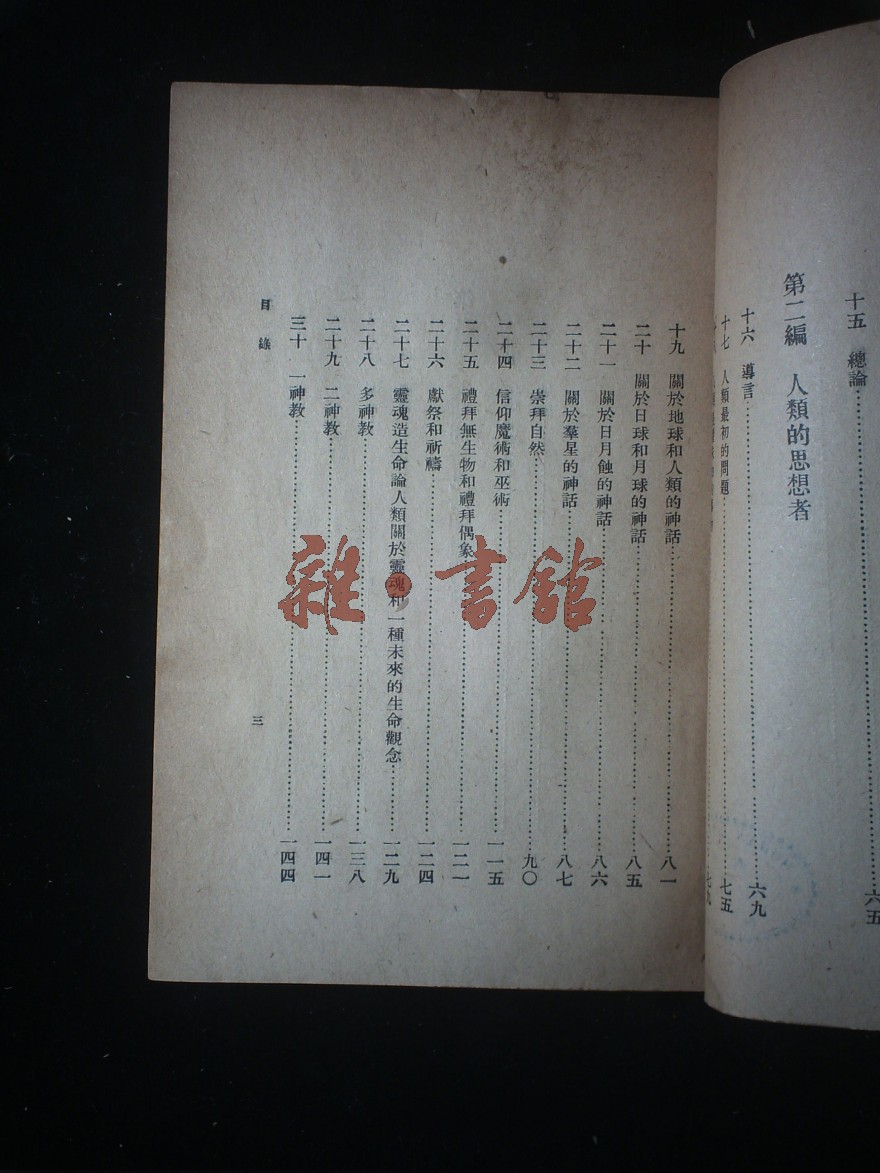 十五　總論…………六五
第二編　人類的思想者
十六　導言…………六九
十七　人類最初的問題…………七五
十九　關於地球和人類的神話…………八一
二十　關於日球和月球的神話…………八五
二十一　關於日月蝕的神話…………八六
二十二　關於羣星的神話…………八七
二十三　崇拜自然…………九〇
二十四　信仰魔術和巫術…………一一五
二十五　禮拜無生物和禮拜偶象…………一二一
二十六　獻祭和祈禱…………一二四
二十七　靈魂造生命論人類關於靈魂和一種未來的生命觀念…………一二九
二十八　多神教…………一三八
二十九　二神教…………一四一
三十　一神教…………一四四
目錄
三
雜·書館